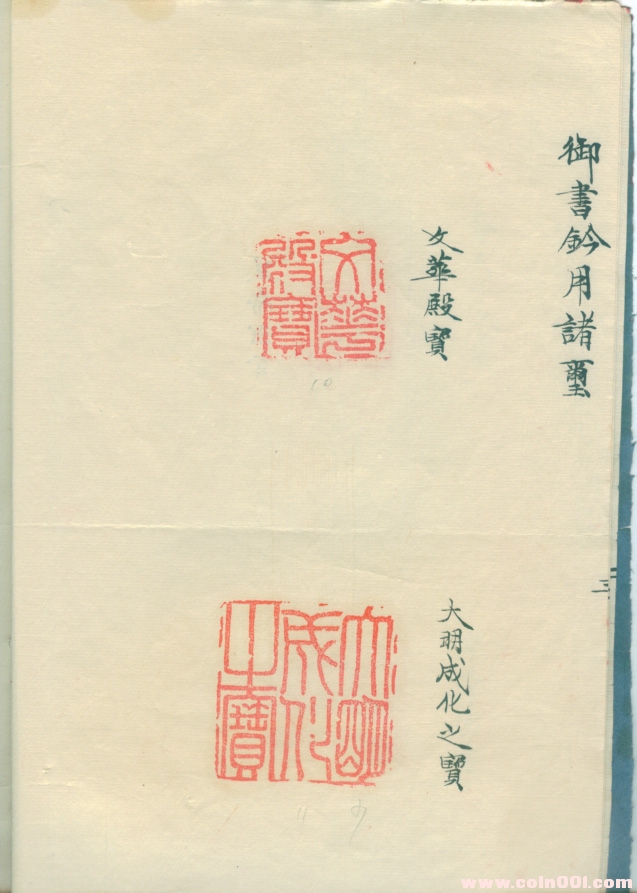 御書鈐用諸璽
文華殿寶
文華殿寶
大明成化之寶
大明成化之寶
三
www.coin001.com